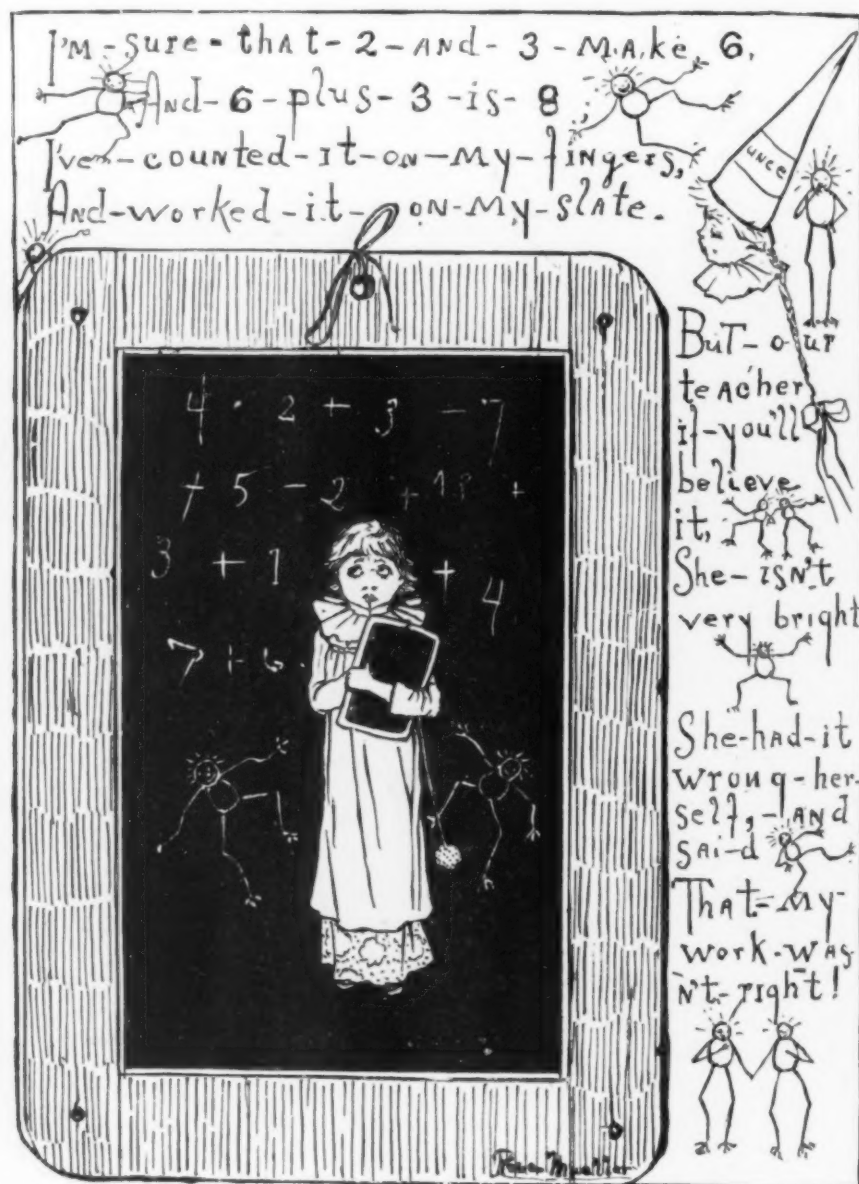 I'm-sure-that-2-and-3-make 6,
And-6-plus-3-is-8;
I've-counted-it-on-my-fingers,
And-worked-it-on-my-slate.
UNCE
But-our
teacher
if-you'll
believe
it,
She-isn't
very bright
She-had-it
wrong-her-
self,-and
sai-d
That-my
work-was-
n't-right!
4 · 2 + 3 - 7
+ 5 - 2 + 13 +
3 + 1 + 4
7 + 6